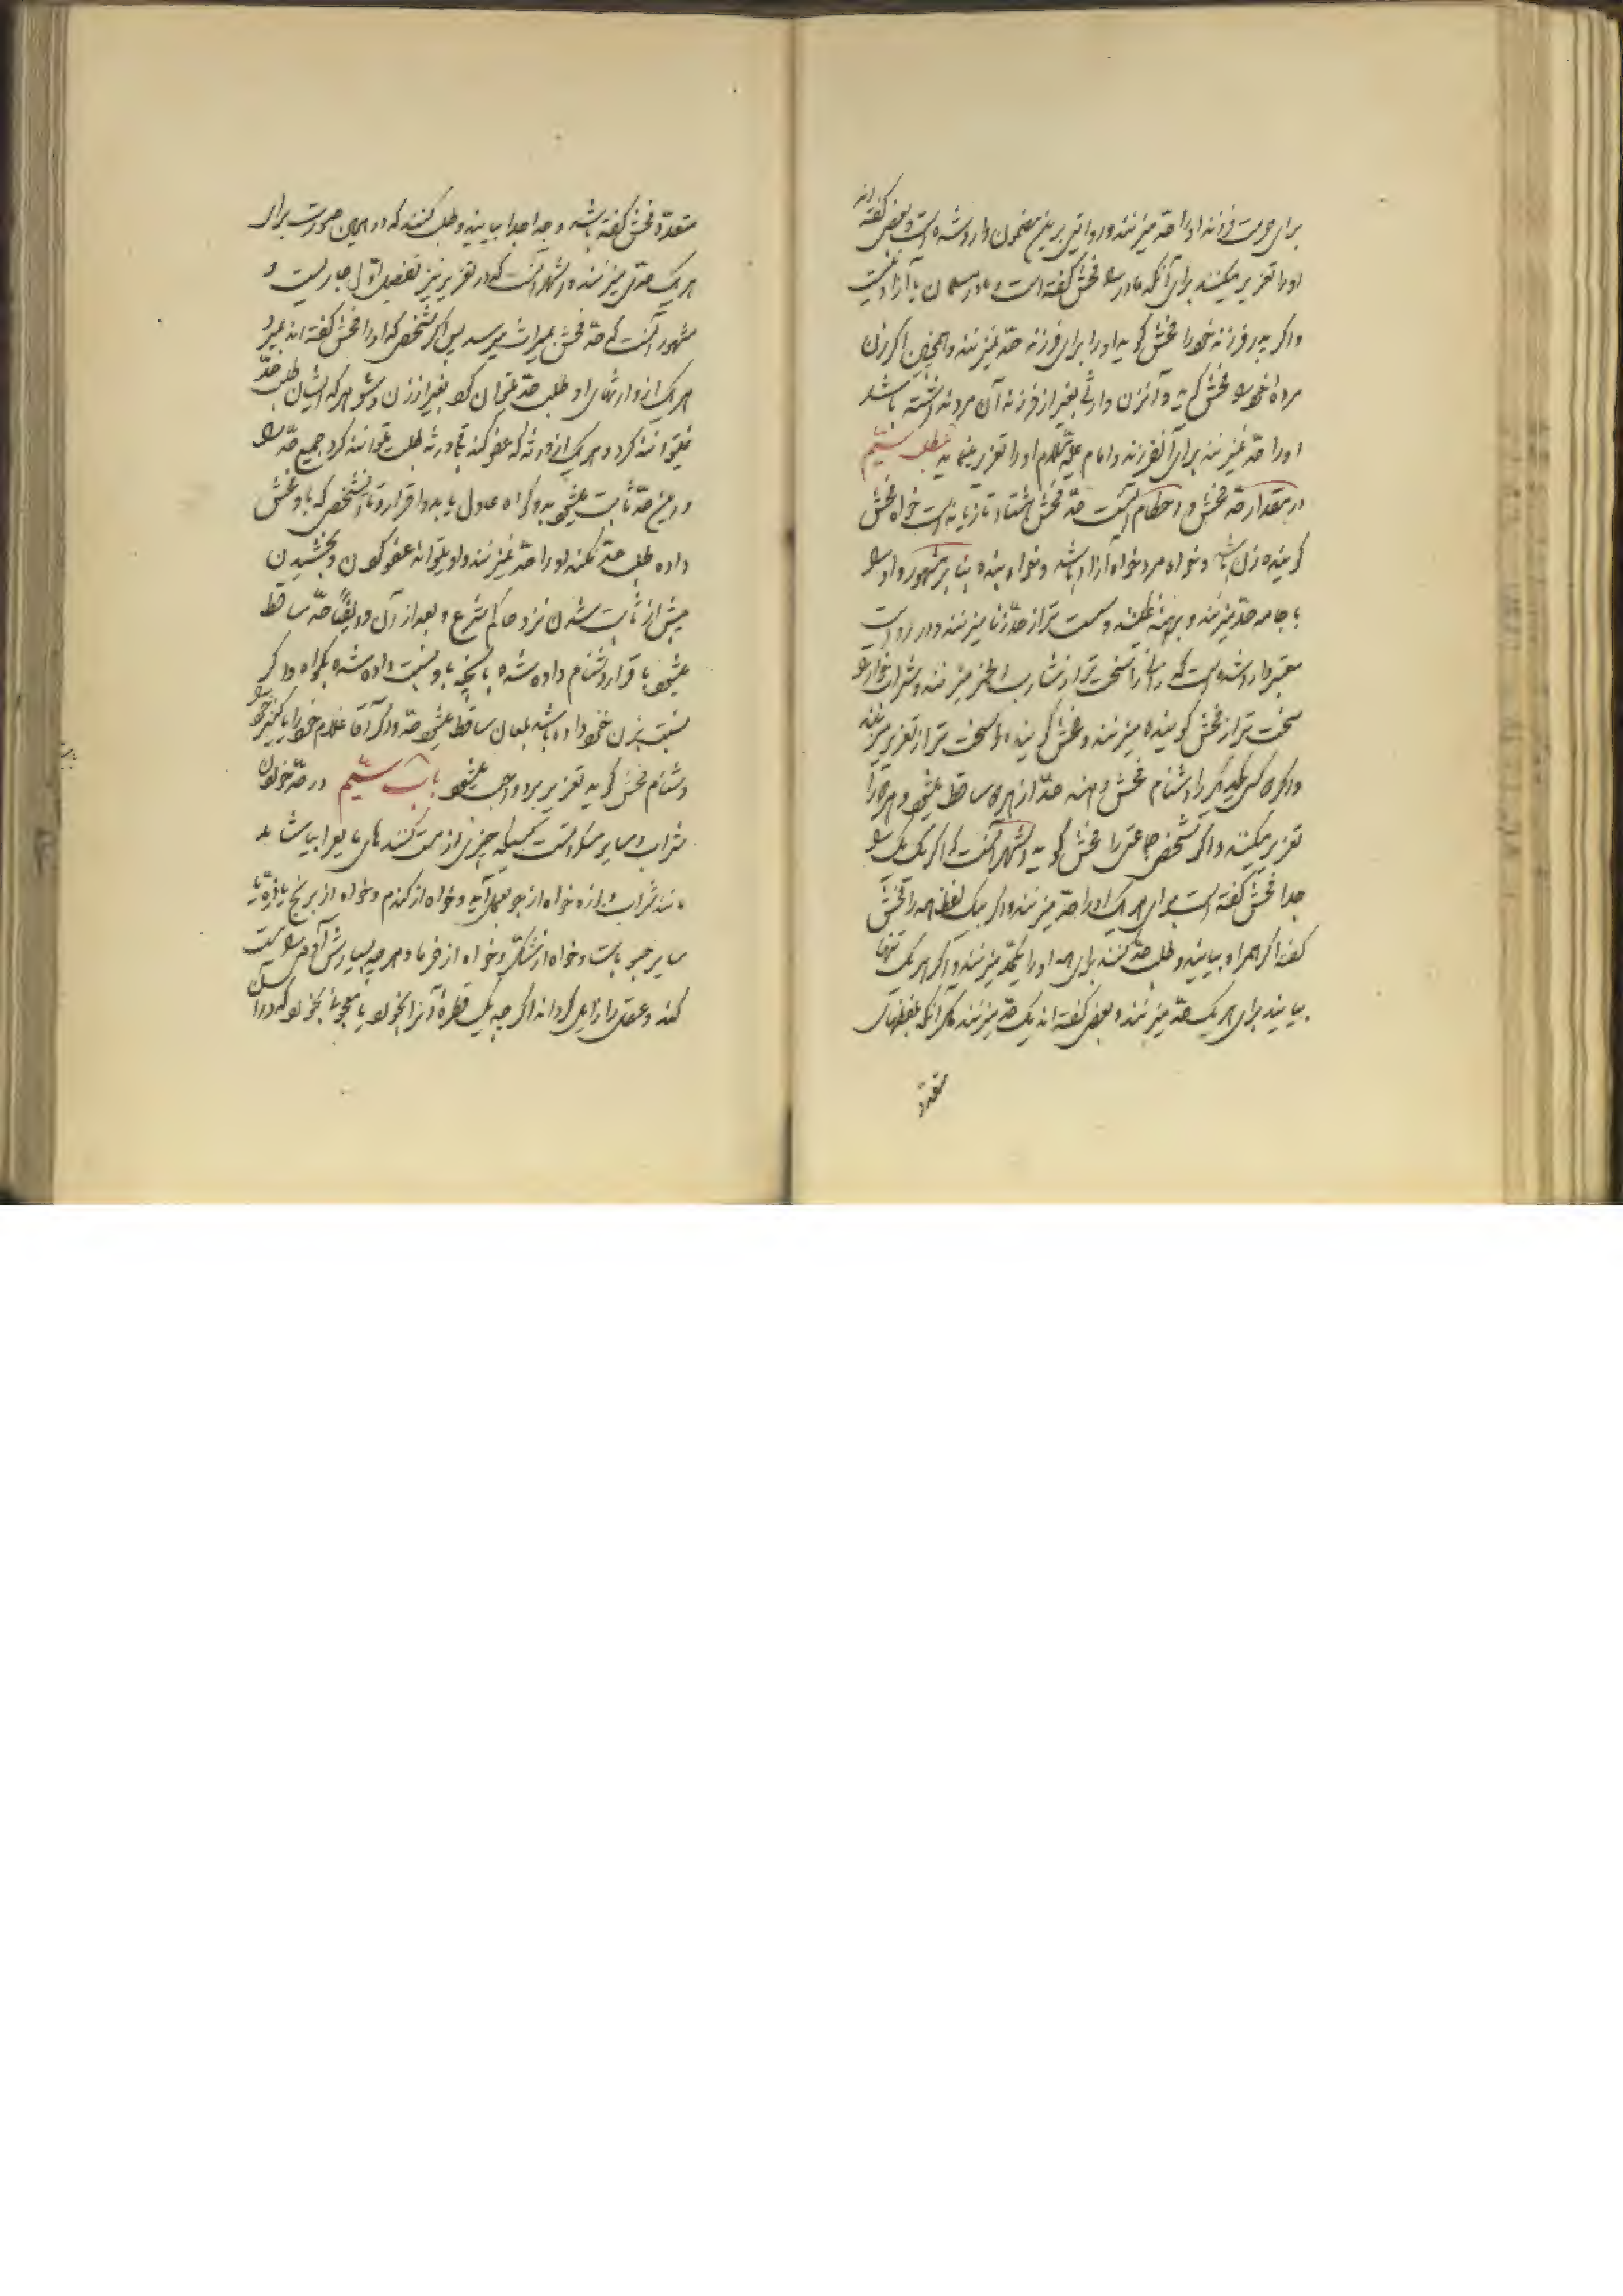 برای حرمت فرزند او را حدّ میزنند و روایتی برین مضمون وارد شده است و بعضی گفته اند
او را تعزیر میکنند برای آنکه مادر را فحش گفته است و مادر مسلمان یا آزاد نیست
و اگر پدر فرزند خود را فحش گوید او را برای فرزند حدّ نمیزنند و همچنین اگر زن
مرده خود را فحش گوید و آنزن وارثی بغیر از فرزند آن مرد نداشته باشد
او را حدّ نمیزنند برای آنفرزند و امام علیه السلام او را تعزیر مینماید مطلب سیّم
در مقدار حدّ فحش و احکام آنست حدّ فحش هشتاد تازیانه است خواه فحش
گوینده زن باشد و خواه مرد خواه آزاد باشد و خواه بنده بنابر مشهور و او را
با جامه حدّ میزنند و برهنه نمیکنند و سست تر از حدّ زنا میزنند و در روایت
معتبر وارد شده است که زانی را سخت تر از شارب الخمر میزنند و شراب خوار را
سخت تر از فحش گوینده میزنند و فحش گوینده را سخت تر از تعزیر میزنند
و اگر دو کس یکدیگر را دشنام فحش دهند حدّ از هر دو ساقط میشود و هر دو را
تعزیر میکنند و اگر شخصی جماعتی را فحش گوید اشهر آنست که اگر یک یک را
جدا فحش گفته است برای هر یک او را حدّ میزنند و اگر بیک لفظ همه را فحش
گفته اگر همراه بیایند و طلب حدّ کنند برای همه او را یکحدّ میزنند و اگر هر یک تنها
بیایند برای هر یک حدّ میزنند و بعضی گفته اند یک حدّ میزنند مگر آنکه بلفظهای
متعدّد
متعدّد فحش گفته باشد و جدا جدا بیایند و طلب کنند که در این صورت برای
هر یک حدّی میزنند و اشهر آنست که در تعزیر نیز تفصیل اوّل جاریست و
مشهور آنست که حدّ فحش بمیراث میرسد پس اگر شخصی که او را فحش گفته اند بمیرد
هر یک از وارثهای او طلب حدّ میتوان کرد بغیر از زن و شوهر که ایشان طلب حدّ
نمیتوانند کرد و هر یک از ورثه که عفو کند باقی ورثه طلب میتوانند کرد جمیع حدّ را
و این حدّ ثابت میشود بدو گواه عادل یا بدو اقرار و تا آنشخص که باو فحش
داده طلب حدّ نکند او را حدّ نمیزنند و او میتواند عفو کردن و بخشیدن
پیش از ثابت شدن نزد حاکم شرع و بعد از آن و ایضاً حدّ ساقط
میشود باقرار دشنام داده شده بآنچه باو نسبت داده شده یا بگواه و اگر
نسبت بزن خود داده باشد بلعان ساقط میشود حدّ و اگر آقا غلام خود را یا کنیز خود را
دشنام فحش گوید تعزیر برو واجب میشود باب سیّم در حدّ خوردن
شراب و سایر مسکراتست کسیکه چیزی از مست کننده های مایع را بیاشامد
مانند شراب و بوزه خواه از جو بعمل آید و خواه از گندم و خواه از برنج یا ذرّت یا
سایر حبوبات و خواه از شکر و خواه از خرما و هر چه بسیارش آدمی را مست
کند و عقل را زایل گرداند اگر چه یک قطره آنرا بخورد یا معجونی بخورد که در آن